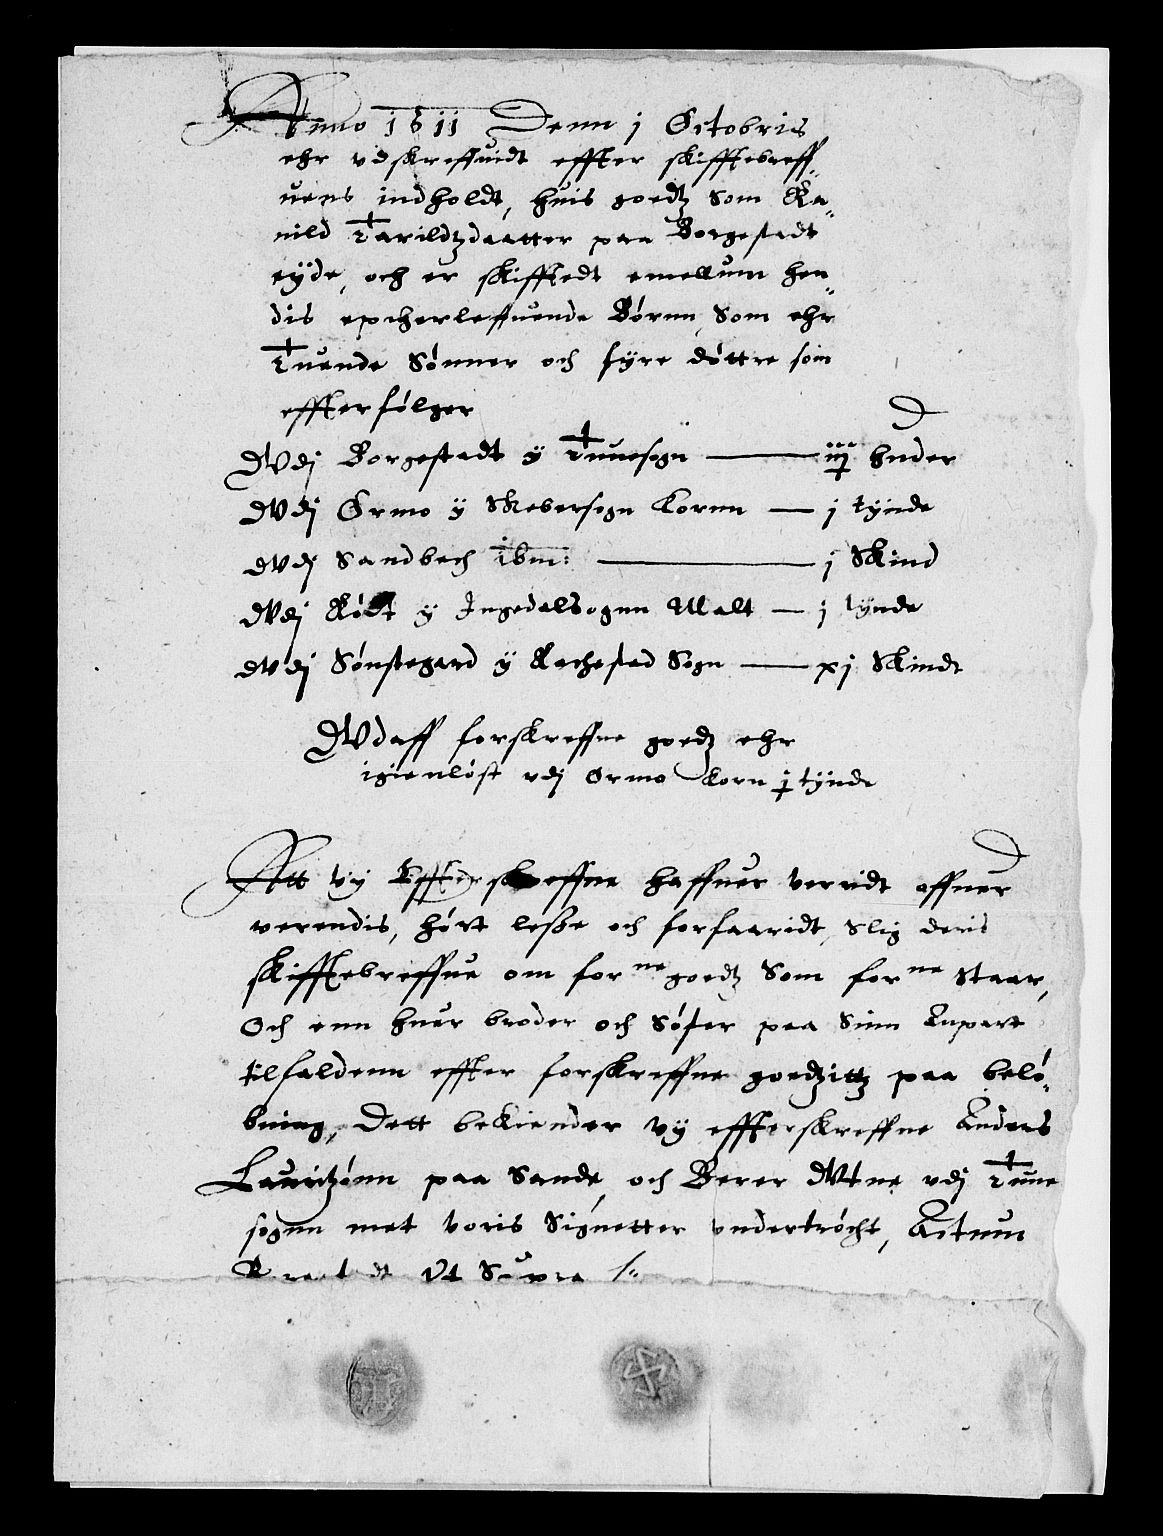 Anno 1611 Denn j Octobris
ehr vdskreffuidt effter skifftebreff-
uens indholdt, huis goedtz som Ra-
nild Tarildtzdaatter paa Borgestadt
eÿde, och er skifftedt emellum hen-
dis epcherleffuende Børnn, Som ehr
Tuende Sønner och fyre døttre som
effterfølger
Wdj Borgestadt ÿ Tunesogn — iiij huder
Wdj Ormo ÿ Skebersogn Kornn — j tÿnde
Wdj Sandbech ibm: — j Skind
Wdj Rødt ÿ Ingedalsognn Malt — j tÿnde
Wdj Sønstegard ÿ Rachestad Sogn — xj Skindt
Wdaff forskreffne goedtz ehr
igienløst vdj Ormo Korn j tÿnde
Att vÿ Effterskreffne haffuer verridt offuer
verendis, hørt leße och forfaaridt, Slig deris
skifftebreffue om forne goedtz Som forne Staar,
Och enn huer broder och Søster paa Sinn Anpart
tilfaldenn effter forskreffne goedtzittz paa belø-
bning, Dett bekiender vÿ effterskreffne Anders
Lauritzønn paa Sande, och Berer Wtne vdj Tune
sognn met voris Signetter vndertrøcht, Actum
Vt Supra